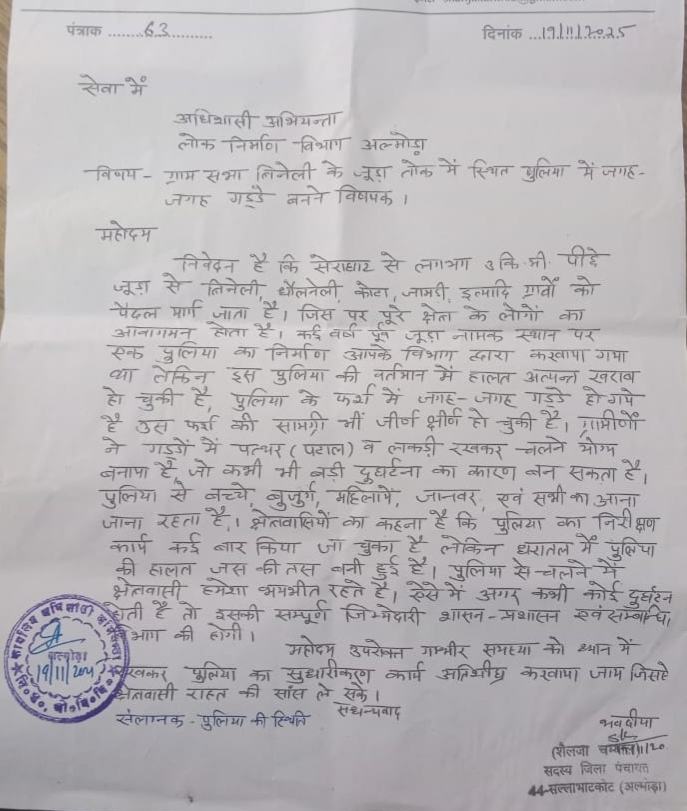 पंत्राक ........63.........
दिनांक ...19/11/2025
सेवा में
अधिशासी अभियन्ता
लोक निर्माण विभाग अल्मोड़ा
विषय - ग्राम सभा तिनेली के जूड़ा तोक में स्थित पुलिया में जगह-
जगह गड्डे बनने विषयक ।
महोदय
निवेदन है कि सेराघाट से लगभग 3 कि.मी. पीछे
जूड़ा से तिनेली, धौलनेली, कोटा, जामडी, इत्यादि गावों को
पैदल मार्ग जाता है। जिस पर पूरे क्षेत्र के लोगों का
आवागमन होता है। कई वर्ष पूर्व जूड़ा नामक स्थान पर
एक पुलिया का निर्माण आपके विभाग द्वारा करवाया गया
था लेकिन इस पुलिया की वर्तमान में हालत अत्यन्त खराब
हो चुकी है, पुलिया के फर्श में जगह-जगह गड्डे हो गये
है उस फर्श की सामग्री भी जीर्ण क्षीर्ण हो चुकी है। ग्रामीणों
ने गड्डों में पत्थर (पटाल) व लकड़ी रखकर चलने योग्य
बनाया है, जो कभी भी बड़ी दुर्घटना का कारण बन सकता है।
पुलिया से बच्चे, बुजुर्ग, महिलायें, जानवर, एवं सभी का आना
जाना रहता है। क्षेतवासियों का कहना है कि पुलिया का निरीक्षण
कार्य कई बार किया जा चुका है लेकिन धरातल में पुलिया
की हालत जस की तस बनी हुई है। पुलिया से चलने में
क्षेतवासी हमेशा भयभीत रहते है। ऐसे में अगर कभी कोई दुर्घटना
होती है तो इसकी सम्पूर्ण जिम्मेदारी शासन-प्रशासन एवं सम्बन्धित
विभाग की होगी।
महोदय उपरोक्त गम्भीर समस्या को ध्यान में
रखकर पुलिया का सुधारीकरण कार्य अतिशीघ्र करवाया जाय जिससे
क्षेतवासी राहत की सांस ले सके।
सधन्यवाद
संलग्नक - पुलिया की स्थिति
भवदीया
(शैलजा
सदस्य जिला पंचायत
44-सल्लाभाटकोट (अल्मोड़ा)
19/11/2025